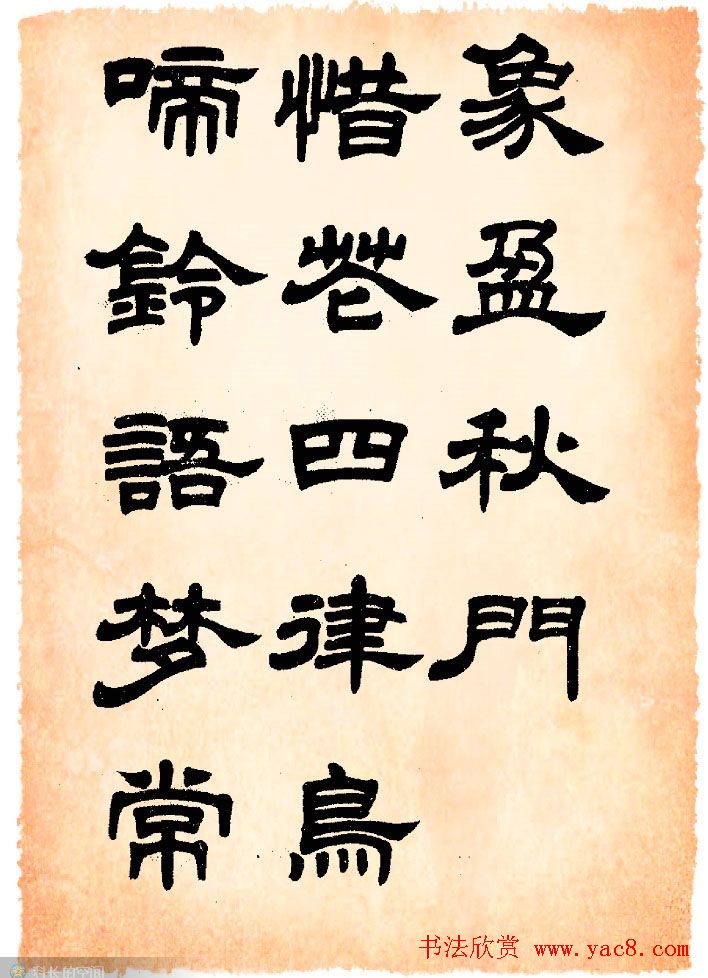 象盈秋門
惜花四律鳥
啼鈴語梦常
书法欣赏 www.yac8.com
科长的空间